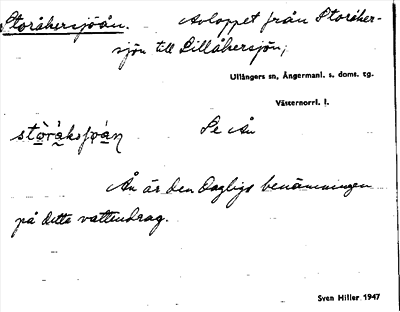 Storåkersjöån. Avloppet från Storåker-
sjön till Lillåkersjön;
Ullångers sn, Ångermanl. s. doms. tg.
Västernorrl. l.
Se Ån
Ån är den dagliga benämningen
på detta vattendrag.
Sven Hiller 1947